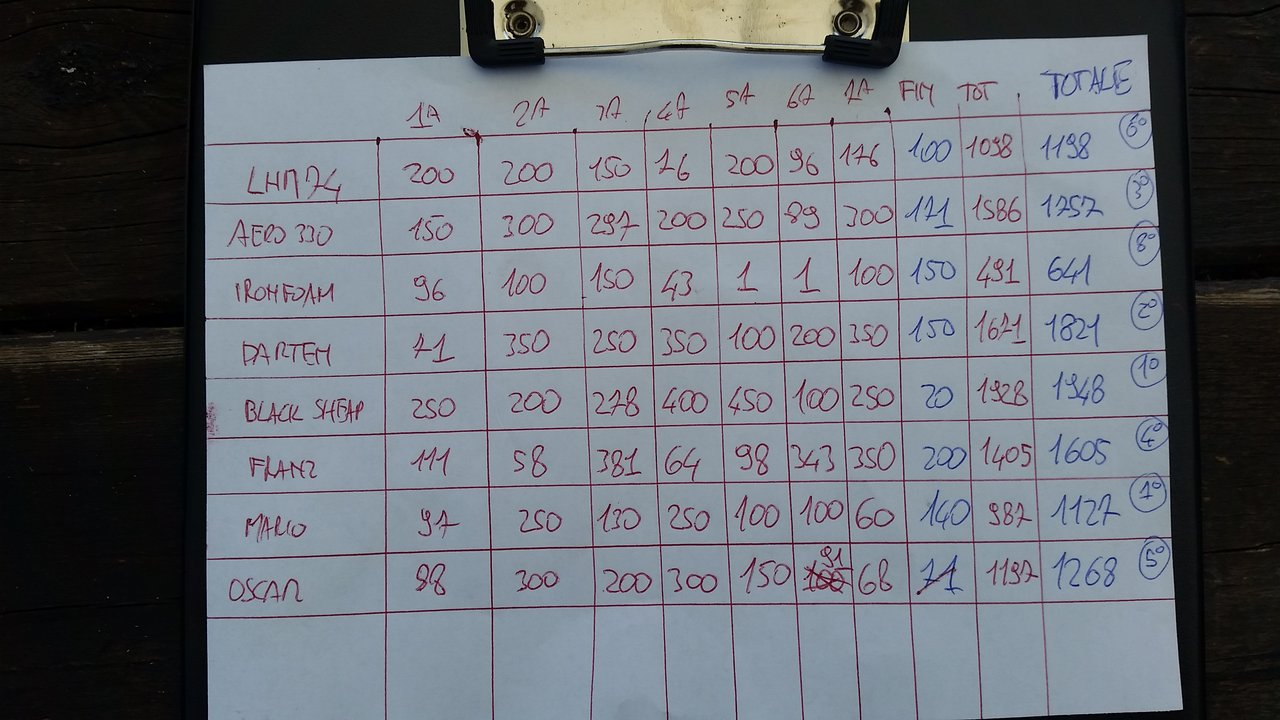 1A 2A 3A 4A 5A 6A 7A FIN TOT TOTALE
LHM74 200 200 150 76 200 96 176 100 1098 1198 6°
AERO 330 150 300 297 200 250 89 300 171 1586 1757 3°
IRONFOAM 96 100 150 43 1 1 100 150 491 641 8°
DARTEN 71 350 250 350 100 200 350 150 1671 1821 2°
BLACK SHEAP 250 200 278 400 450 100 250 20 1928 1948 1°
FRANZ 111 58 381 64 98 343 350 200 1405 1605 4°
MARIO 97 250 130 250 100 100 60 140 987 1127 7°
OSCAR 88 300 200 300 150 91 68 71 1197 1268 5°